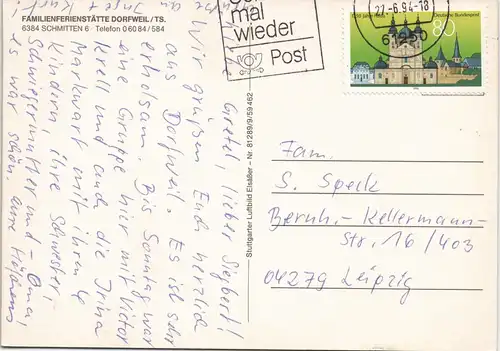 FAMILIENFERIENSTÄTTE DORFWEIL/TS.
6384 SCHMITTEN 6 · Telefon 06084/584
mal
wieder
Post
22.-6.94-18
Deutsche Bundespost
80
Gretel, lieber Siegbert!
Wir grüßen Euch herzlich
aus Dorfweil. Es ist sehr
erholsam. Bis Sonntag war
eine Gruppe hier mit Victor
Krell und auch die Irina
Markwart mit ihren 4
Kindern, ihre Schwester,
Schwiegermutter und - Oma!
es war schön. eure
Stuttgarter Luftbild Elsäßer – Nr. 81289/9/59462
Fam.
S. Speck
Bernh.-Kellermann-
Str. 16/403
04279 Leipzig